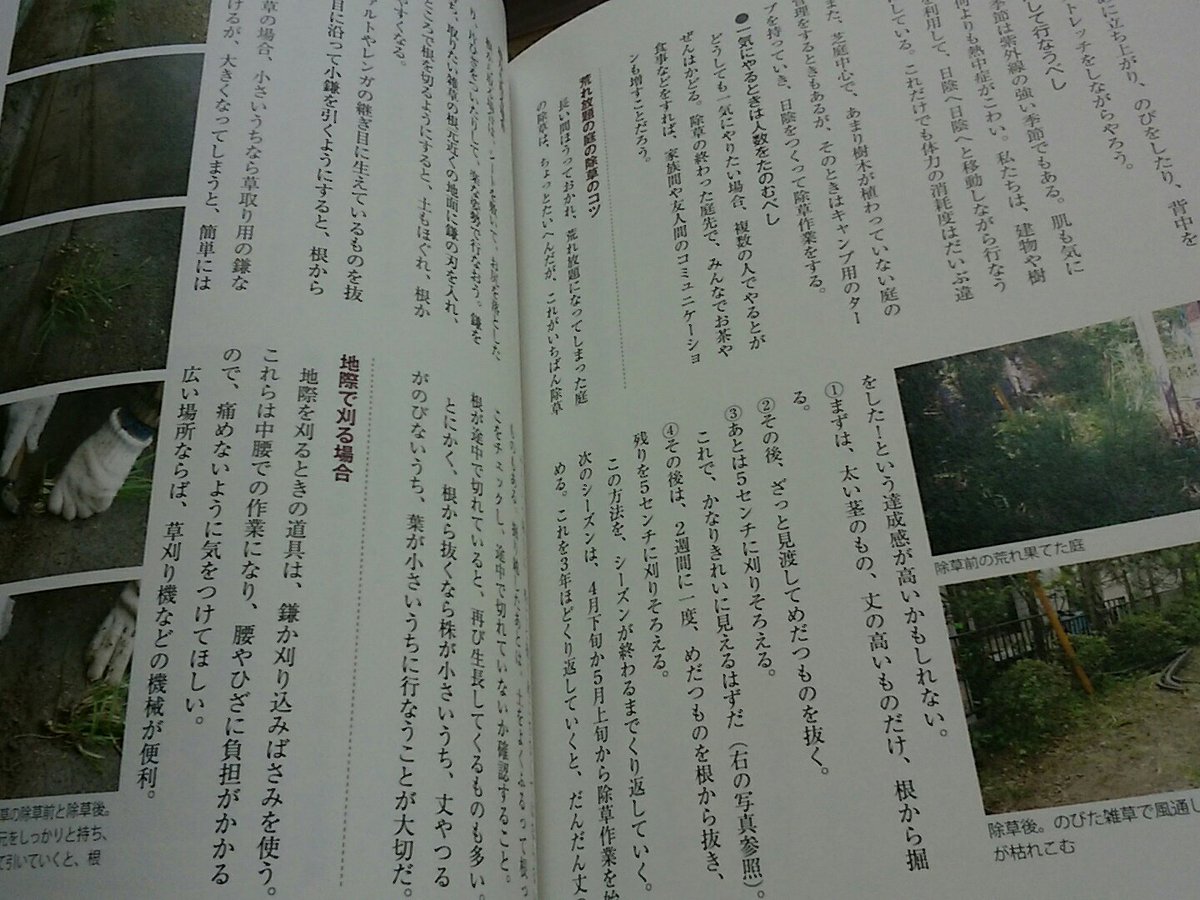 めに立ち上がり、のびをしたり、背中を
トレッチをしながらやろう。
して行なうべし
季節は紫外線の強い季節でもある。肌も気に
何よりも熱中症がこわい。私たちは、建物や樹
を利用して、日陰へ日陰へと移動しながら行なう
している。これだけでも体力の消耗度はだいぶ違
また、芝庭中心で、あまり樹木が植わっていない庭の
管理をするときもあるが、そのときはキャンプ用のター
プを持っていき、日陰をつくって除草作業をする。
●一気にやるときは人数をたのむべし
どうしても一気にやりたい場合、複数の人でやるとが
ぜんはかどる。除草の終わった庭先で、みんなでお茶や
食事などをすれば、家族間や友人間のコミュニケーショ
ンも増すことだろう。
荒れ放題の庭の除草のコツ
長い間ほうっておかれ、荒れ放題になってしまった庭
の除草は、ちょっとたいへんだが、これがいちばん除草
をしたーという達成感が高いかもしれない。
①まずは、太い茎のもの、丈の高いものだけ、根から掘
る。
②その後、ざっと見渡してめだつものを抜く。
③あとは5センチに刈りそろえる。
これで、かなりきれいに見えるはずだ（右の写真参照）。
④その後は、2週間に一度、めだつものを根から抜き、
残りを5センチに刈りそろえる。
この方法を、シーズンが終わるまでくり返していく。
次のシーズンは、4月下旬か5月上旬から除草作業を始
める。これを3年ほどくり返していくと、だんだん丈の
除草前の荒れ果てた庭
除草後。のびた雑草で風通し
が枯れこむ
も、取りたい雑草の根元近くの地面に鎌の刃を入れ、
ところで根を切るようにすると、土もほぐれ、根か
やすくなる。
ァルトやレンガの継ぎ目に生えているものを抜
目に沿って小鎌を引くようにすると、根から
草の場合、小さいうちなら草取り用の鎌な
けるが、大きくなってしまうと、簡単には
こをチェックし、途中で切れていないか確認すること。
根が途中で切れていると、再び生長してくるものも多い。
とにかく、根から抜くなら株が小さいうち、丈やつる
がのびないうち、葉が小さいうちに行なうことが大切だ。
地際で刈る場合
地際を刈るときの道具は、鎌か刈り込みばさみを使う。
これらは中腰での作業になり、腰やひざに負担がかかる
ので、痛めないように気をつけてほしい。
広い場所ならば、草刈り機などの機械が便利。
草の除草前と除草後。
元をしっかりと持ち、
て引いていくと、根